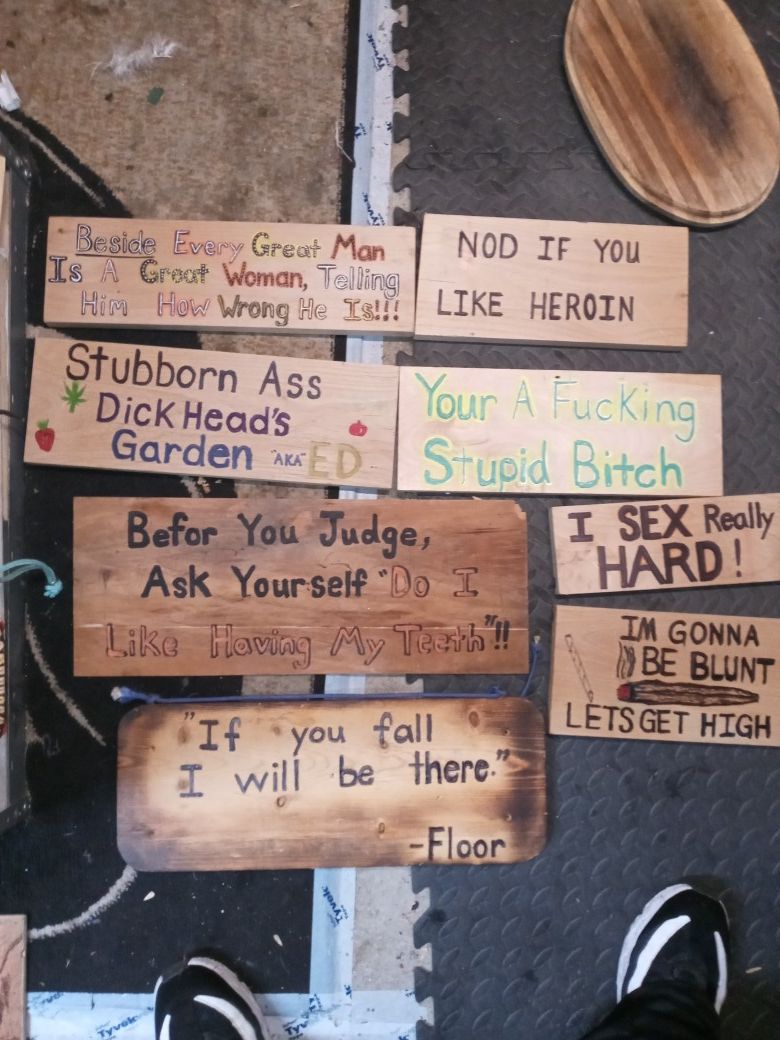 Beside Every Great Man
Is A Great Woman, Telling
Him How Wrong He Is!!!
NOD IF YOU
LIKE HEROIN
Stubborn Ass
Dick Head's
Garden "AKA" ED
Your A Fucking
Stupid Bitch
Befor You Judge,
Ask Yourself "Do I
Like Having My Teeth"!!
I SEX Really
HARD!
IM GONNA
BE BLUNT
LETS GET HIGH
"If you fall
I will be there."
-Floor
Tyvek
Tyvek
Tyvek
Tyvek
Tyvek